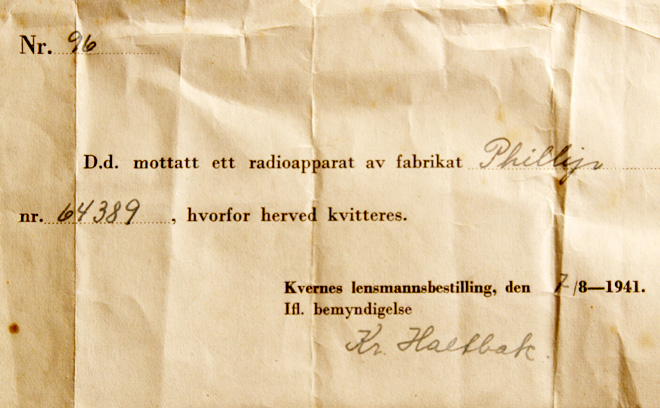 Nr. 96
D.d. mottatt ett radioapparat av fabrikat Phillips
nr. 64389, hvorfor herved kvitteres.
Kvernes lensmannsbestilling, den 7/8—1941.
Ifl. bemyndigelse
Kr. Haltbak.